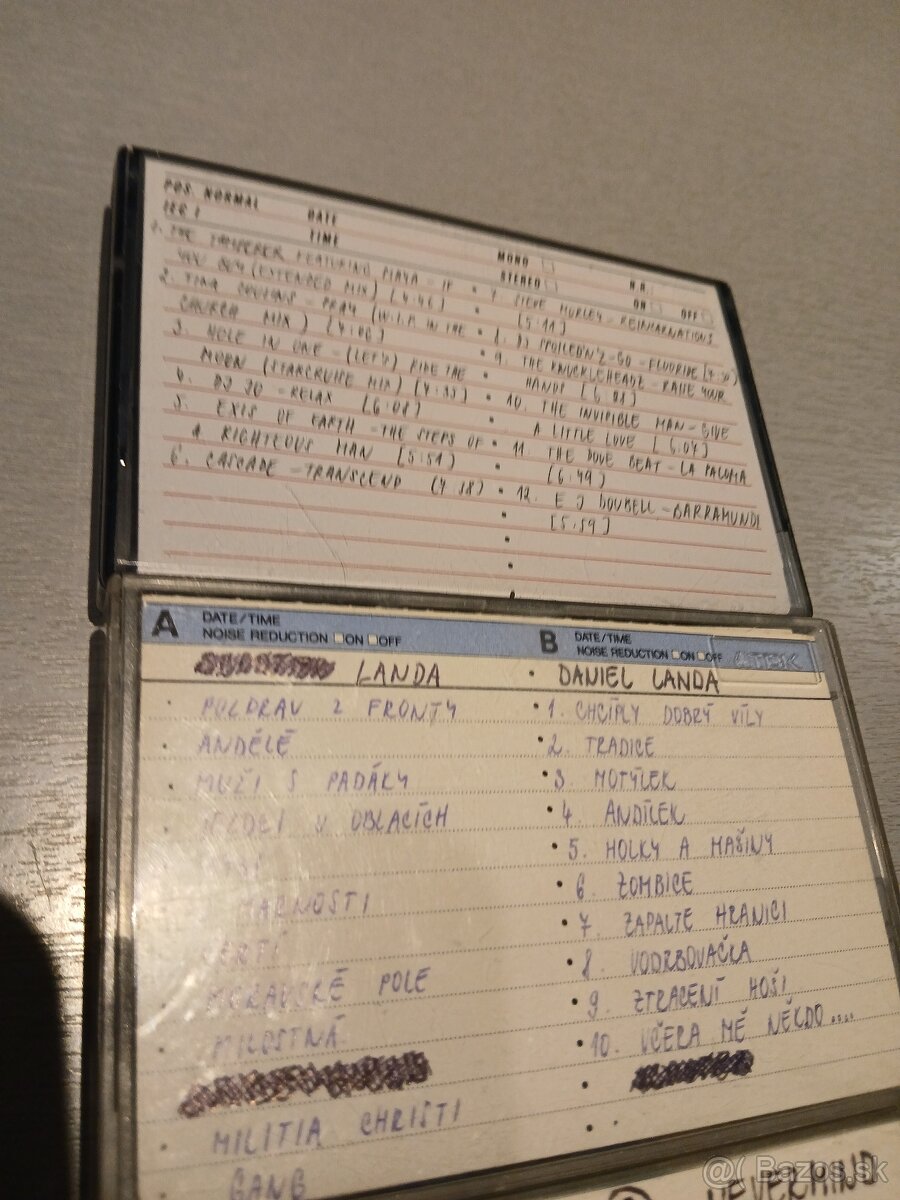 POS. NORMAL DATE MONO N.R.:
IEC I TIME STEREO ON OFF
1. THE FEATURING MAYA - IF
YOU BUY (EXTENDED MIX) [4:46]
2. TINA COUSINS - PRAY (W.I.P. IN THE
CHURCH MIX) [4:06]
3. HOLE IN ONE - (LET'S) RIDE THE
MOEN (STARCRUISE MIX) [4:33]
4. DJ JO - RELAX [6:08]
5. EXIS OF EARTH - THE STEPS OF
A RIGHTEOUS MAN [5:51]
6. CASCADE - TRANSCEND (4:38)
7. STEVE MORLEY - REINCARNATIONS
[5:11]
8. DJ SPOILED'N'Z-GO - FLUORIDE [7:30]
9. THE KNUCKLEHEADZ - RAISE YOUR
HANDS [6:01]
10. THE INVISIBLE MAN - GIVE
A LITTLE LOVE [6:07]
11. THE DOVE BEAT - LA PALOMA
[6:49]
12. E J DOUBELL - BARRAMUNDI
[5:59]
A DATE/TIME
NOISE REDUCTION ON OFF
LANDA
POZDRAV Z FRONTY
ANDĚLÉ
MUŽI S PADÁKY
V OBLACÍCH
ČERTI
MORAVSKÉ POLE
MILOSTNÁ
MILITIA CHRISTI
GANG
B DATE/TIME
NOISE REDUCTION ON OFF
DANIEL LANDA
1. CHCÍPLY DOBRÝ VÍLY
2. TRADICE
3. MOTÝLEK
4. ANDÍLEK
5. HOLKY A MAŠINY
6. ZOMBICE
7. ZAPALTE HRANICI
8. VODRBOVAČKA
9. ZTRACENÍ HOŠI
10. VČERA MĚ NĚKDO....
NEVERMIND
Bazos.sk